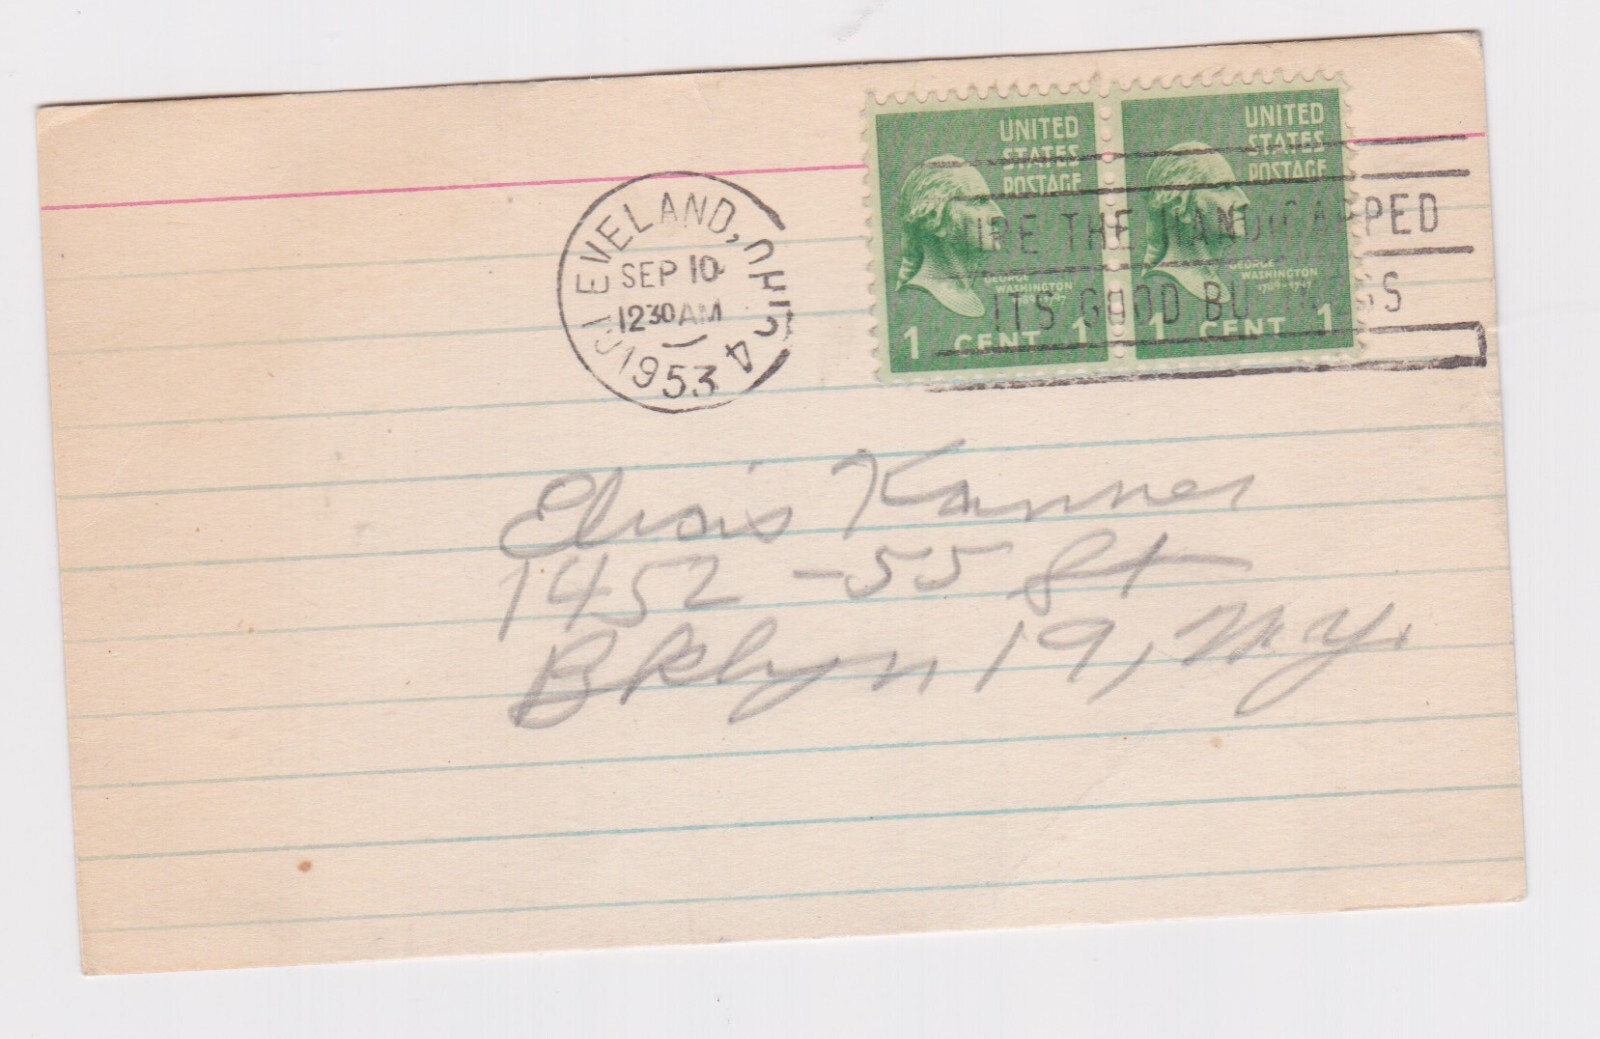 UNITED
STATES
POSTAGE
GEORGE
WASHINGTON
1 CENT 1
UNITED
STATES
POSTAGE
GEORGE
WASHINGTON
1789-1797
1 CENT 1
CLEVELAND, OHIO 4
SEP 10
1230 AM
1953
HIRE THE HANDICAPPED
ITS GOOD BUSINESS
Kanner
1452 - 55 St
Bklyn, 19, N.Y.